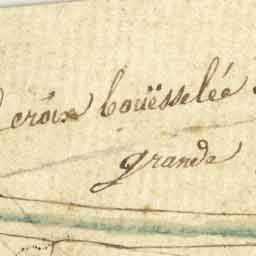 croix bouësselée
grande